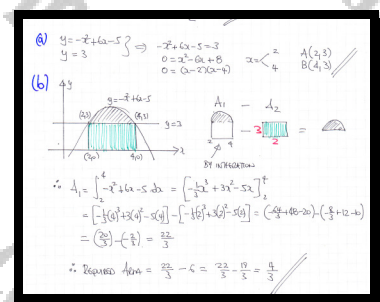 (a) y=-x²+6x-5 } ⇒ -x²+6x-5=3
y=3
0=x²-6x+8
0=(x-2)(x-4)
x=< 2 4
A(2,3)
B(4,3)
(b)
y
y=-x²+6x-5
(2,3) (4,3)
y=3
(2,0) (4,0) x
A₁ - A₂
3 =
2 4 2
BY INTEGRATION
∴ A₁ = ∫₂⁴ -x²+6x-5 dx = [-⅓x³+3x²-5x]₂⁴
= [-⅓(4)³+3(4)²-5(4)] - [-⅓(2)³+3(2)²-5(2)] = (-64/3+48-20)-(-8/3+12-10)
= (20/3)-(-2/3) = 22/3
∴ REQUIRED AREA = 22/3 - 6 = 22/3 - 18/3 = 4/3